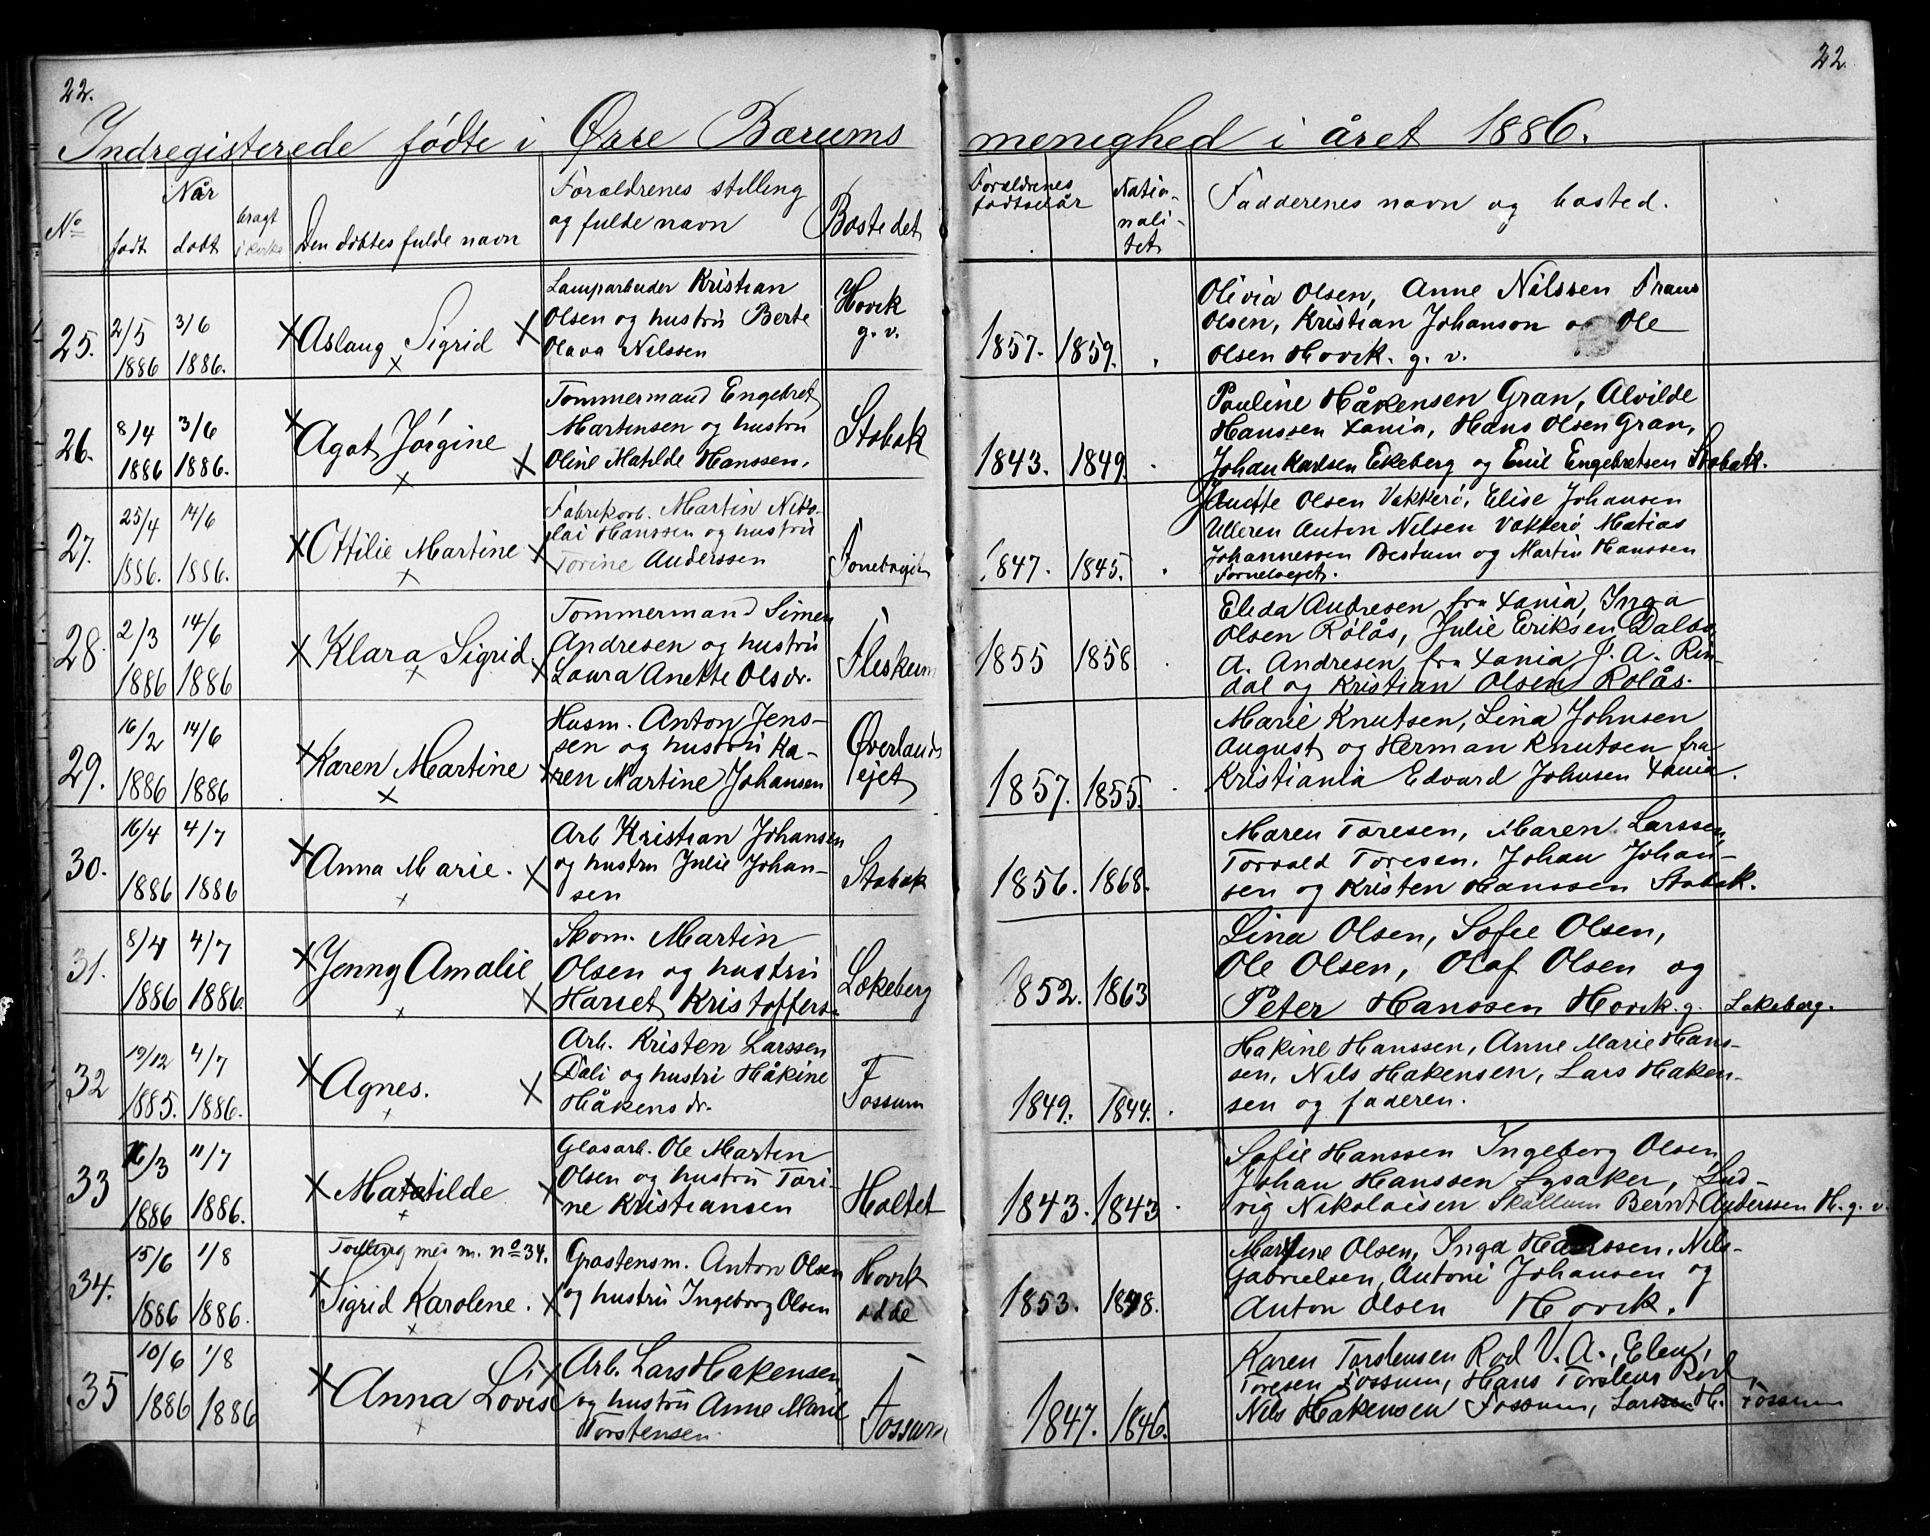 22. 22.
Indregisterede fødte i Øvre Bærums menighed i året 1886.
No Når født døbt bragt i kirke Den døbtes fulde navn Forældrenes stilling og fulde navn Bostedet Forældrenes fødselsår Nationalitet Faddernes navn og bosted.
25. 2/5 3/6 Lamparbeider Kristian Hovik Olivia Olsen, Anne Nilssen Frans
1886 1886. Aslaug Sigrid Olsen og hustru Berte g. v. 1857. 1859. Olsen, Kristian Johanson og Ole
Olava Nilssen Olsen Hovik. g. v.
26. 8/4 3/6 Tømmermand Engebret Stabæk Pauline Håkensen Gran, Alvilde
1886 1886. Agot Jørgine Martensen og hustru 1843. 1849. Hanssen Xania, Hans Olsen Gran,
Oline Matilde Hanssen. Johan Karlsen Ekeberg og Emil Engebretsen Stabæk.
27. 25/4 14/6 Fabrikarb. Martin Niko- Anette Olsen Vækkerø, Elise Johansen
1886. 1886. Ottilie Martine lai Hanssen og hustru 1847. 1845. Ulleren Anton Nilsen Vækkerø Matias
Torine Anderssen Johannessen Bestum og Martin Hanssen
28. 2/3 14/6 Tømmermand Simen Fleskum Eleda Andresen fra Xania, Inga
1886 1886 Klara Sigrid. Andresen og hustru 1855 1858 Olsen Rolås, Julie Eriksen Dalbo,
Laura Anette Olsdr. A. Andresen fra Xania J. A. Rin-
dal og Kristian Olsen Rolås.
29. 16/2 14/6 Husm. Anton Jens- Øverlands Marie Knutsen, Lina Johnsen
1886 1886 Karen Martine sen og hustru Ka- ejet 1857. 1855. August og Herman Knutsen fra
ren Martine Johansen Kristiania Edvard Johnsen Xania.
30. 16/4 4/7 Arb Kristian Johansen Stabæk Maren Toresen, Maren Larssen,
1886 1886 Anna Marie. og hustru Julie Johan- 1856. 1868. Torvald Toresen, Johan Johan-
sen sen og Kristen Hanssen Stabæk.
31. 8/4 4/7 Skom. Martin Lokeberg Lina Olsen, Sofie Olsen,
1886 1886. Jenny Amalie Olsen og hustru 1852. 1863 Ole Olsen, Olaf Olsen og
Harset Kristoffers. Peter Hanssen Hovik. g. Lokeberg.
32 19/12 4/7 Arb. Kristen Larssen Fossum Hakine Hanssen, Anne Marie Hans-
1885. 1886. Agnes. Dæli og hustru Håkine 1849. 1844. sen, Nils Hakensen, Lars Haken-
Håkensdr. sen og faderen.
33 16/3 11/7 Glasarb. Ole Marten Holtet Sofie Hanssen Ingeborg Olsen,
1886 1886. Matatilde Olsen og hustru Tori- 1843. 1843 Johan Hanssen Lysaker, Lud-
ne Kristiansen vig Nikolaisen Skallum Bernt Anderssen H. g. v.
34. 15/6 1/8 Tvilling med m. no 34. Gråstensm. Anton Olsen Hovik Martine Olsen, Inga Hanssen. Nils
1886 1886. Sigrid Karolene. og hustru Ingeborg Olsen odde 1853. 1848. Gabrielsen, Antoni Johansen og
Anton Olsen Hovik.
35 10/6 1/8 Arb. Lars Hakensen Fossum Karen Torstensen Rød V. A., Elen
1886 1886 Anna Lovise og hustru Anne Marie 1847. 1846. Toresen Fossum, Hans Torstens Rød,
Torstensen. Nils Hakensen Fossum, Larssen H. Fossum